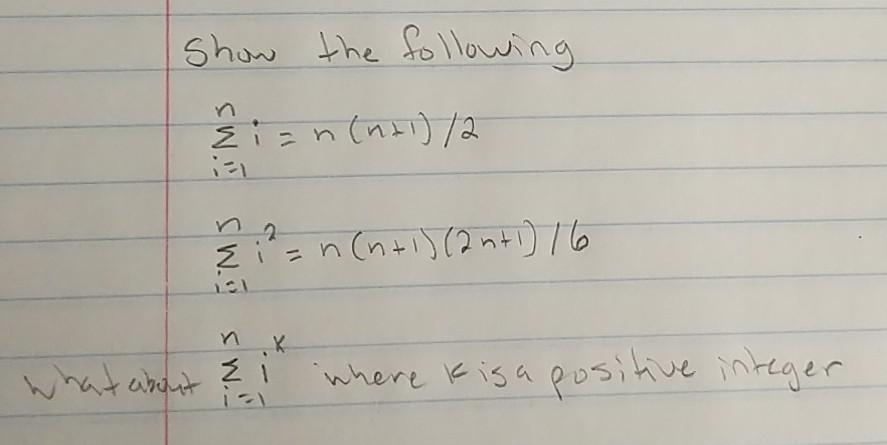 Show the following
n
Σ i = n(n+1)/2
i=1
n
Σ i² = n(n+1)(2n+1)/6
i=1
n
What about Σ iᴷ where K is a positive integer
i=1